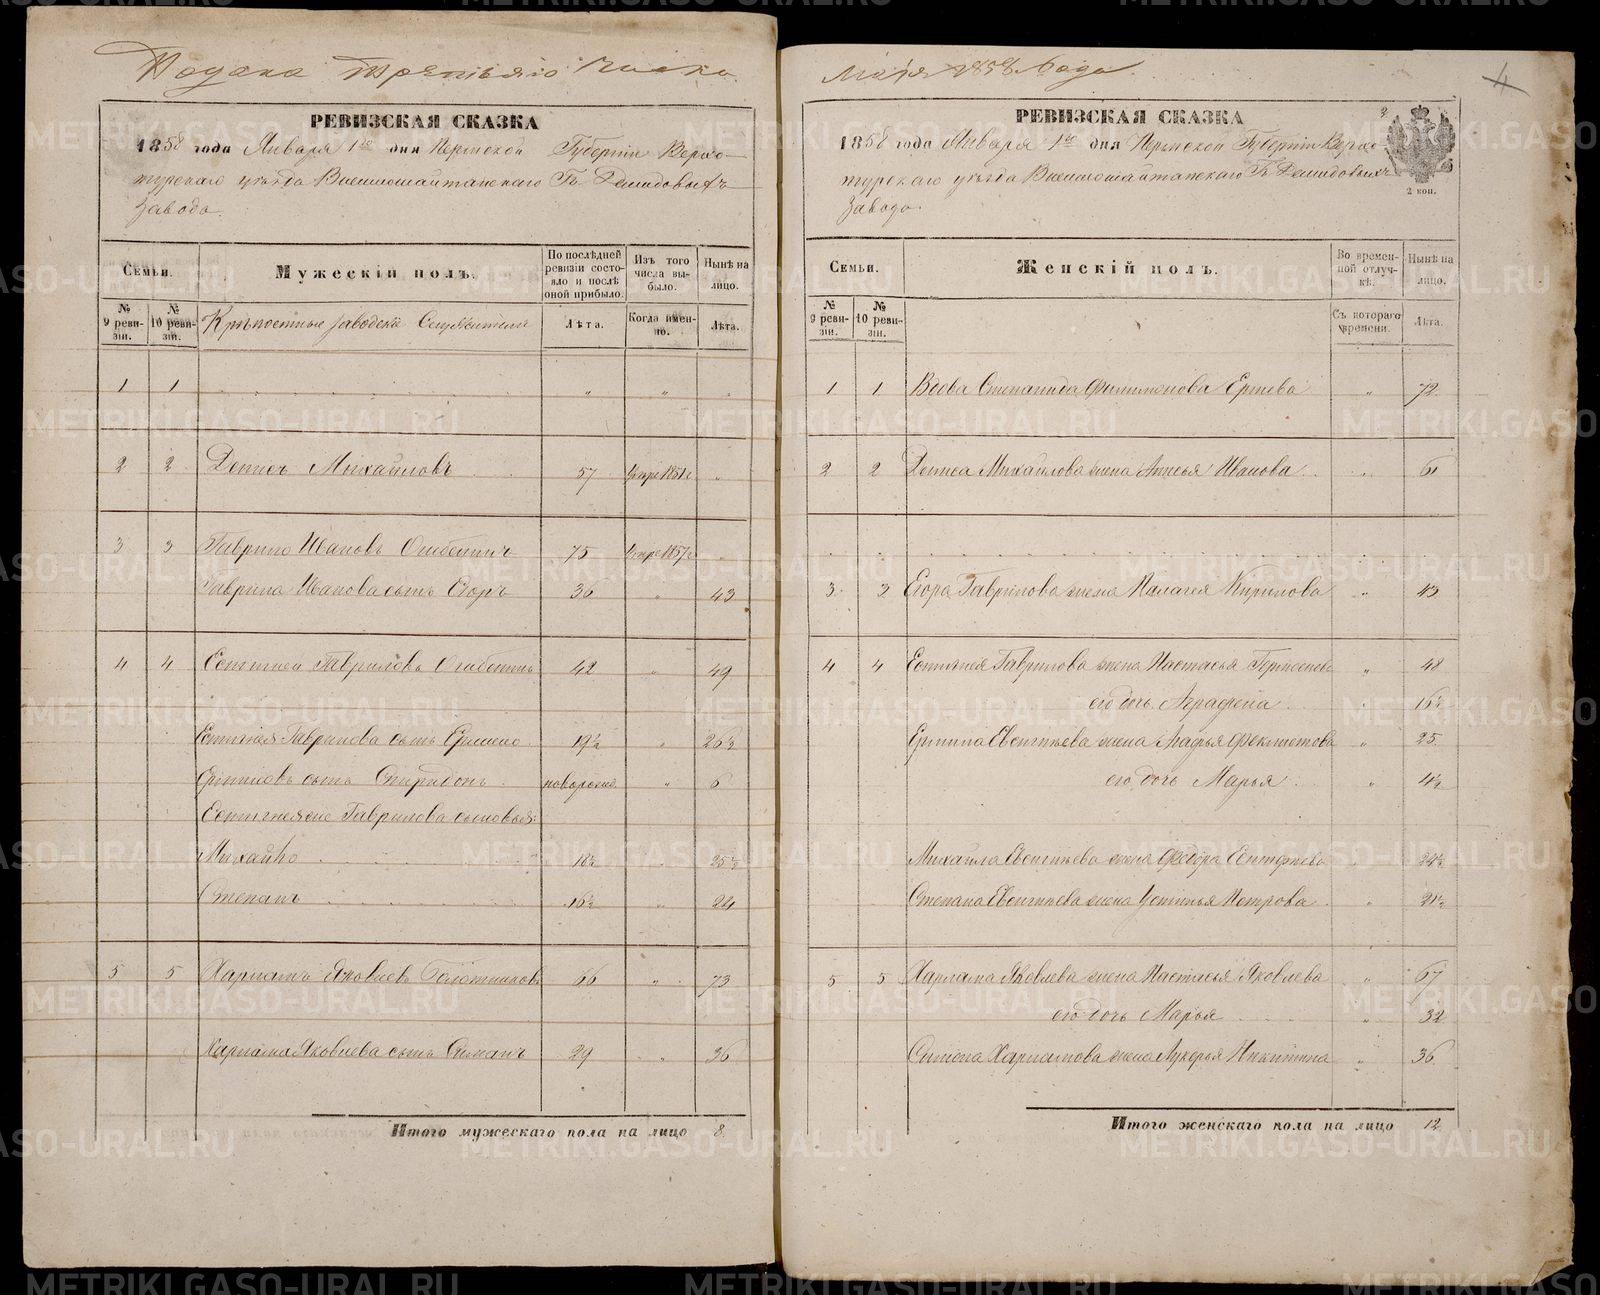 Подана третьяго числа
РЕВИЗСКАЯ СКАЗКА
1858 года Января 1го дня Пермской Губерніи Верхо-
турскаго уѣзда Висимошайтанскаго Гг. Демидовыхъ
Завода.
Семьи.
Мужескій полъ.
По послѣдней ревизіи состояло и послѣ оной прибыло.
Изъ того числа выбыло.
Нынѣ на лицо.
№ 9 ревизіи.
№ 10 ревизіи.
Крѣпостные заводскіе Служители
Лѣта.
Когда именно.
Лѣта.
1 1 „ „ „
2 2 Денисъ Михайловъ 57 Умре 1851г „
3 3 Гаврило Ивановъ 75 Умре 1857г
Гаврила Иванова сынъ Егоръ 36 „ 43
4 4 Гавриловъ 42 „ 49
Гаврилова сынъ 19½ „ 26½
сынъ Спиридонъ новорожд. „ 6
Гаврилова сыновья:
Михайло 18½ „ 25½
Степанъ 16½ „ 24
5 5 Харламъ Яковлевъ 66 „ 73
Харлама Яковлева сынъ Симанъ 29 „ 36
Итого мужескаго пола на лицо 8
Мая 1858 года
4
РЕВИЗСКАЯ СКАЗКА
2
1858 года Января 1го дня Пермской Губерніи Верхо-
турскаго уѣзда Висимошайтанскаго Гг. Демидовыхъ
Завода.
2 коп.
Семьи.
Женскій полъ.
Во временной отлучкѣ.
Нынѣ на лицо.
№ 9 ревизіи.
№ 10 ревизіи.
Съ котораго времени.
Лѣта.
1 1 Вдова Степанида Филимонова „ 72
2 2 Дениса Михайлова жена Анисья Иванова „ 61
3 3 Егора Гаврилова жена Палагея Кирилова „ 43
4 4 Гаврилова жена Настасья „ 48
его дочь Аграфена „ 16½
жена „ 25
его дочь Марья „ 4½
Михайла жена Федора „ 24½
Степана жена Устинья Петрова „ 21½
5 5 Харлама Яковлева жена Настасья Яковлева „ 67
его дочь Марья „ 32
Симона Харламова жена Лукерья Никитина „ 36
Итого женскаго пола на лицо 12
METRIKI.GASO-URAL.RU